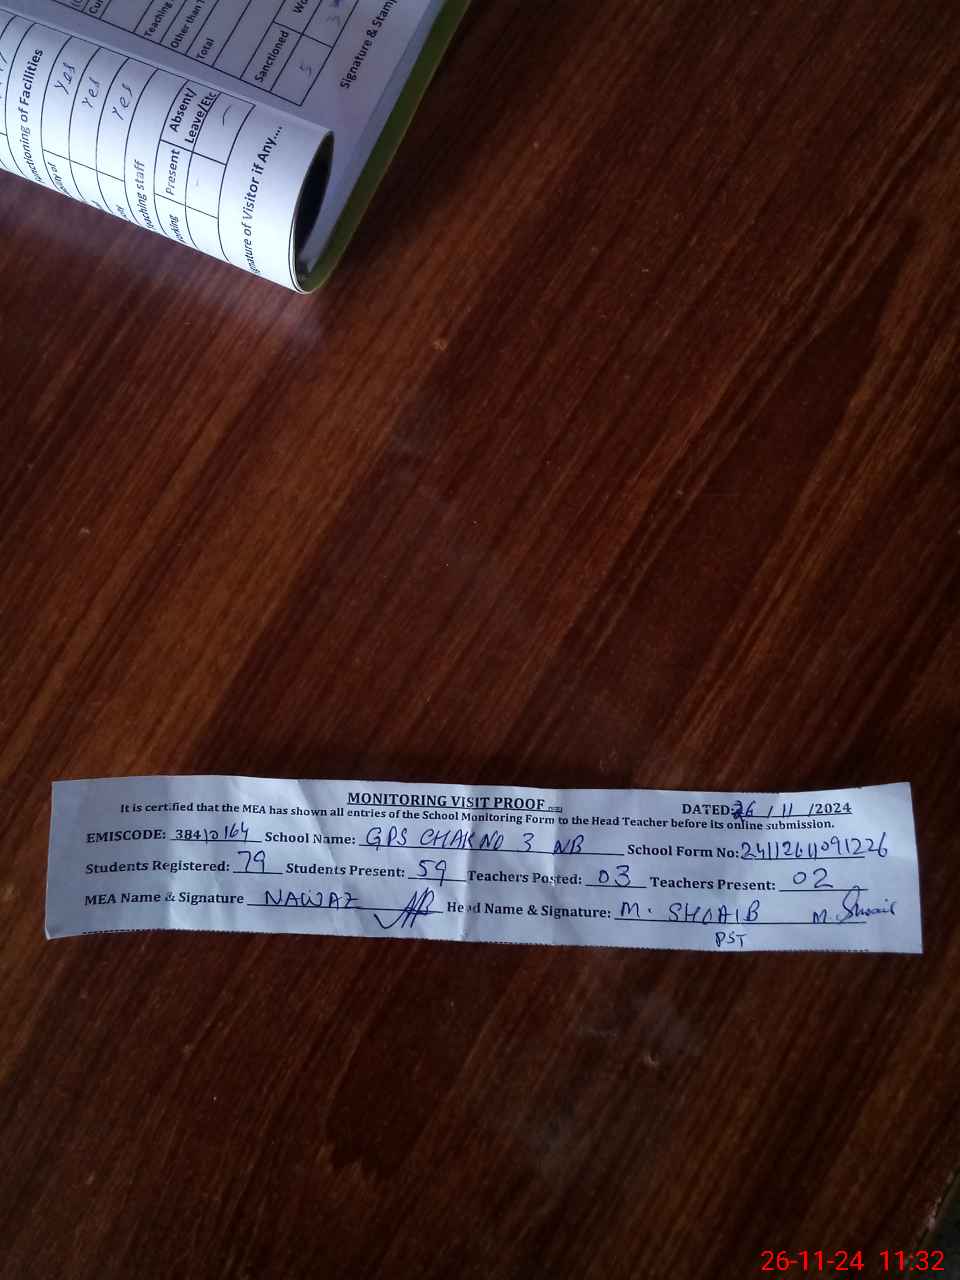 Cur
Teaching
Other than T
Total
Sanctioned
Wo
5
3
Signature & Stamp
nctioning of Facilities
yes
yes
yes
aching staff
orking Present Absent/
Leave/Etc
gnature of Visitor if Any....
MONITORING VISIT PROOF
DATED: 26 / 11 /2024
It is certified that the MEA has shown all entries of the School Monitoring Form to the Head Teacher before its online submission.
EMISCODE: 38410164 School Name: GPS CHAK NO 3 NB School Form No: 24112611091226
Students Registered: 79 Students Present: 59 Teachers Posted: 03 Teachers Present: 02
MEA Name & Signature NAWAZ Head Name & Signature: M. SHOAIB M. Shoaib
PST
26-11-24 11:32